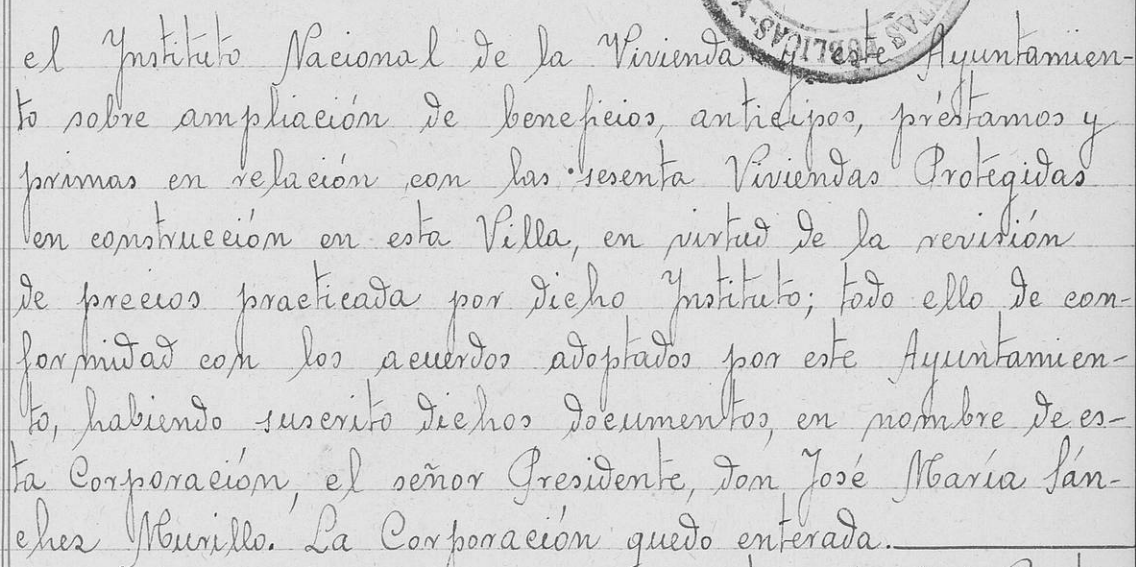 el Ynstituto Nacional de la Vivienda y este Ayuntamien-
to sobre ampliación de beneficios, anticipos, préstamos y
primas en relación con las sesenta Viviendas Protegidas
en construcción en esta Villa, en virtud de la revisión
de precios practicada por dicho Ynstituto; todo ello de con-
formidad con los acuerdos adoptados por este Ayuntamien-
to, habiendo suscrito dichos documentos, en nombre de es-
ta Corporación, el señor Presidente, don José María Sán-
chez Murillo. La Corporación quedo enterada.